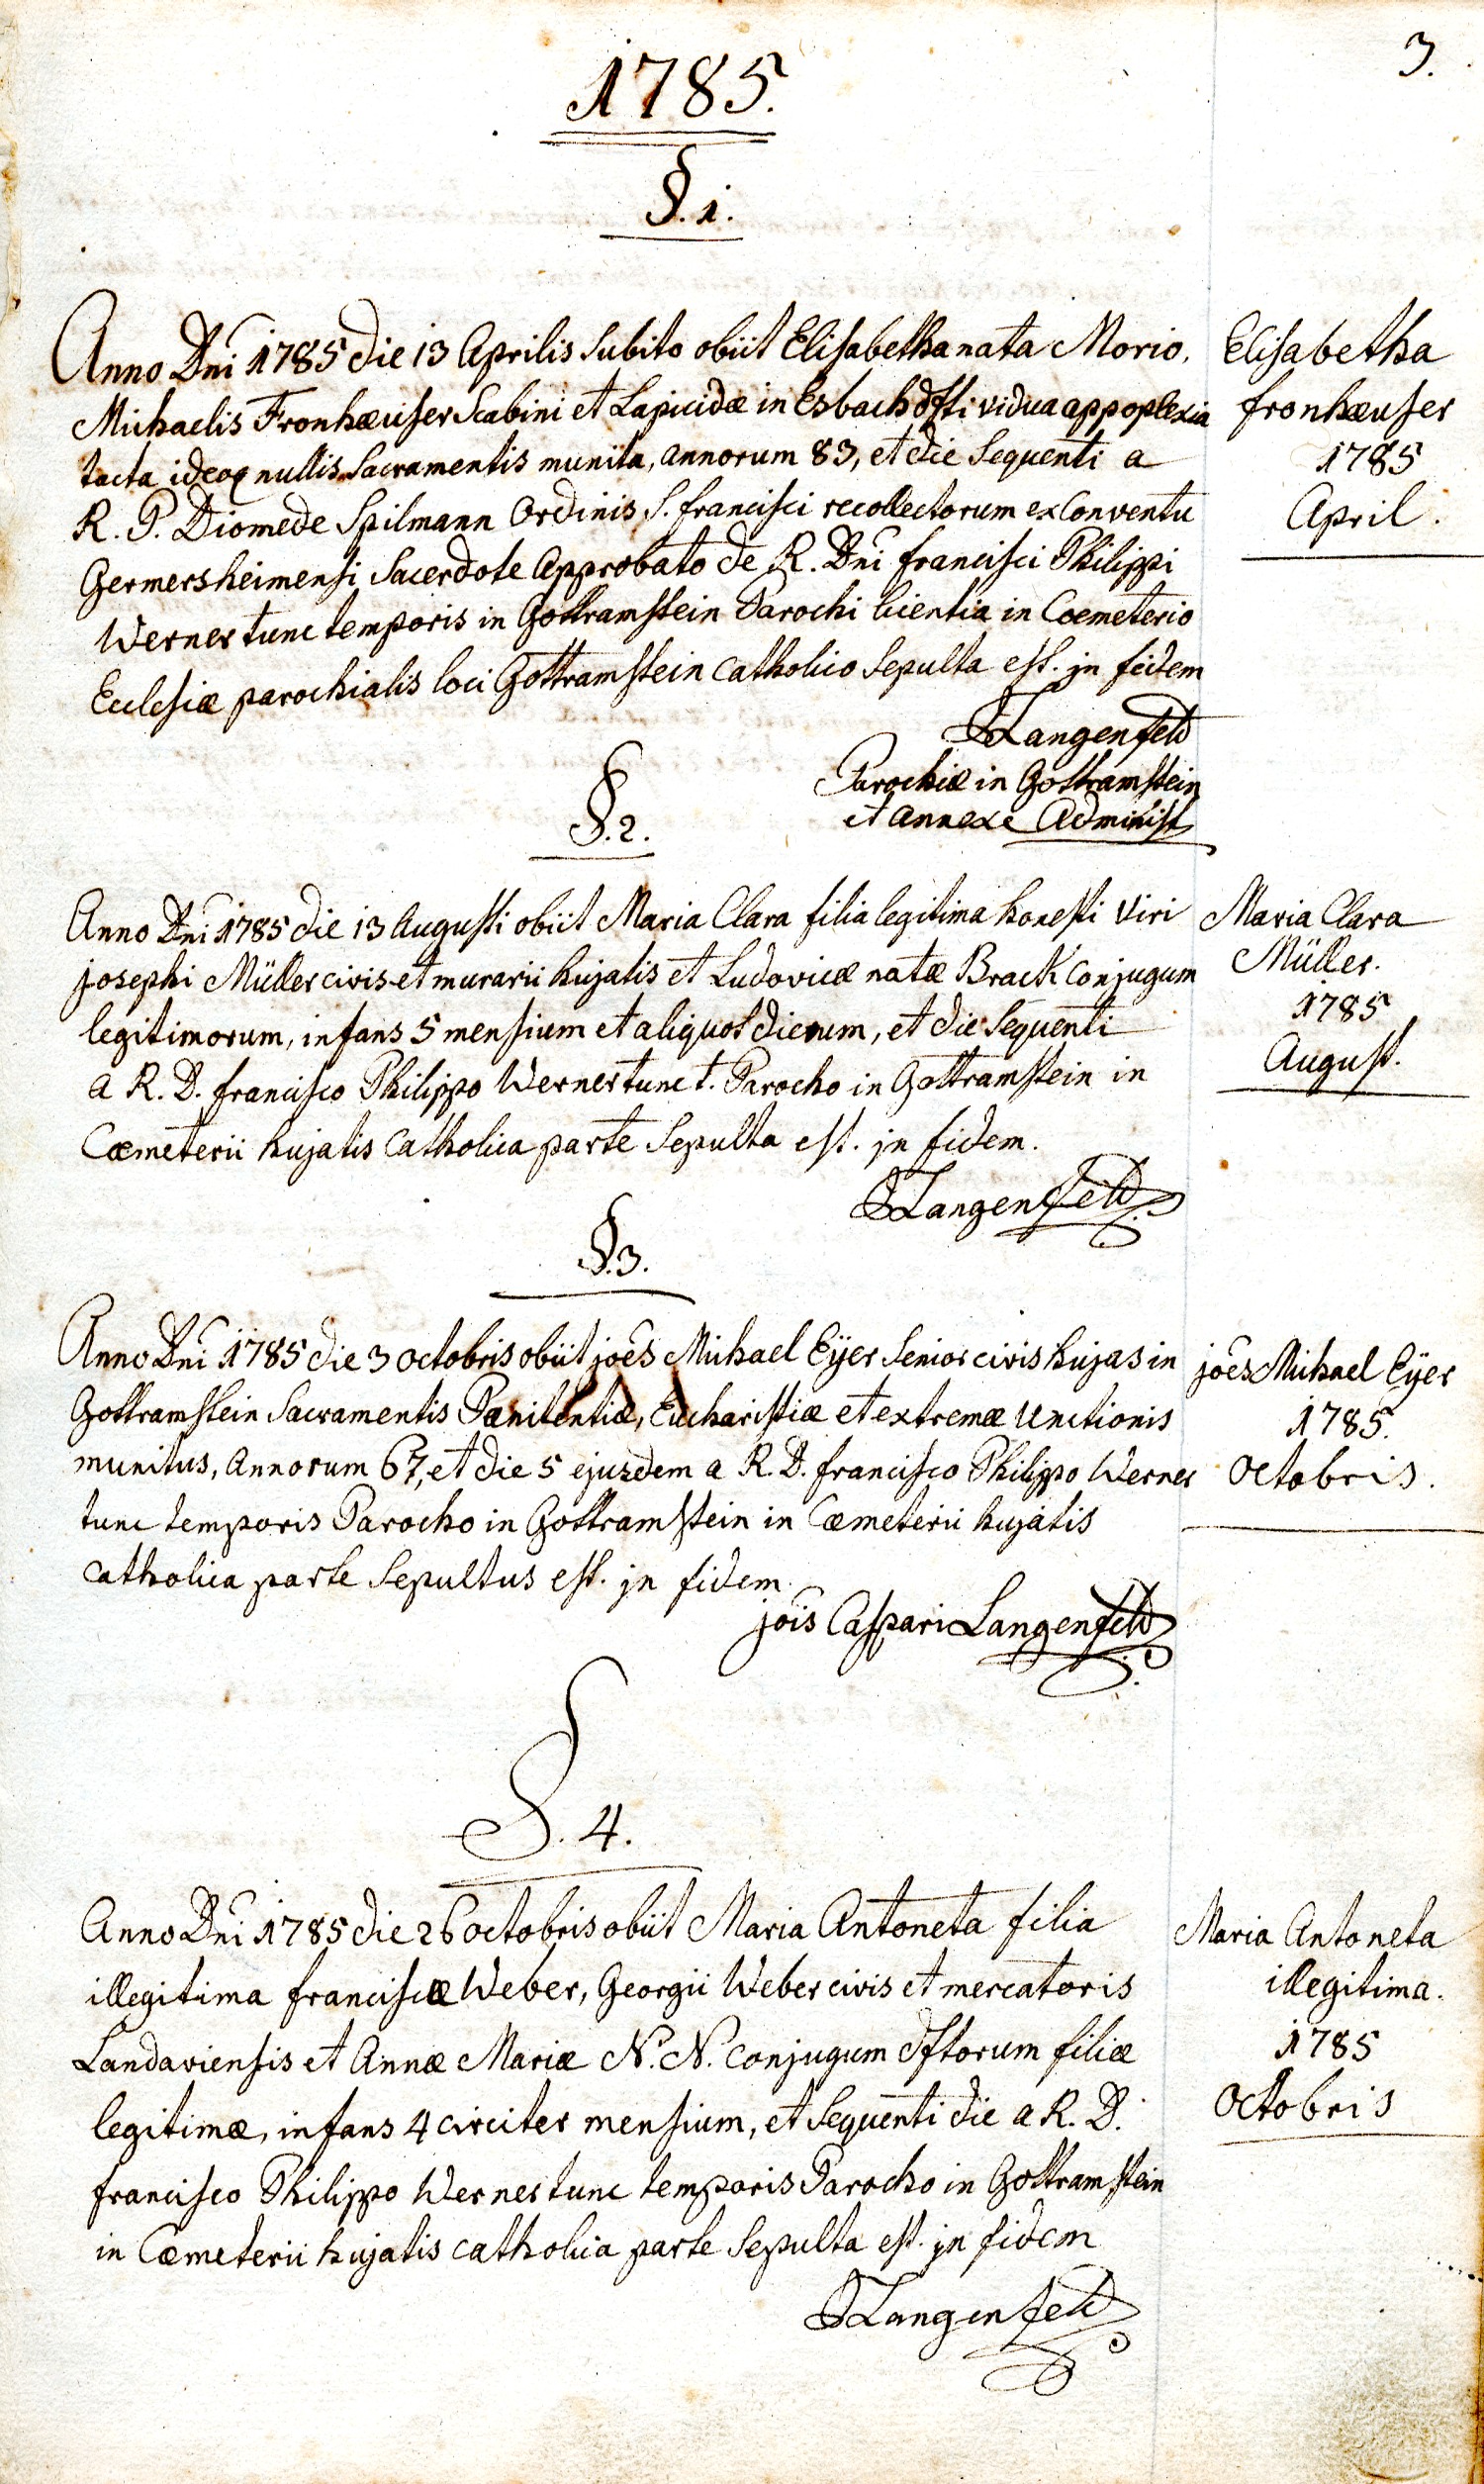 3.
1785.
§. 1.
Anno Dni 1785 die 13 Aprilis subito obiit Elisabetha nata Morio,
Michaelis Fronhæuser Scabini et Lapicidæ in Esbach dfti vidua appoplexia
tacta ideoq nullis Sacramentis munita, annorum 83, et die sequenti a
R. P. Diomede Spilmann Ordinis S. francisci recollectorum ex Conventu
Germersheimensi Sacerdote Approbato de R. Dni francisci Philippi
Werner tunc temporis in Gottramstein Parochi licentia in Coemeterio
Ecclesiæ parochialis loci Gottramstein catholico sepulta est. jn fidem
Langenfeld
Parochiæ in Gottramstein
et annexæ Administ
Elisabetha
fronhæuser
1785
April.
§. 2.
Anno Dni 1785 die 13 Augusti obiit Maria Clara filia legitima honesti Viri
josephi Müller civis et murarii hujatis et Ludovicæ natæ Brack conjugum
legitimorum, infans 5 mensium et aliquot dierum, et die sequenti
a R. D. francisco Philippo Werner tunc t. Parocho in Gottramstein in
Cœmeterii hujatis Catholica parte sepulta est. jn fidem.
Langenfeld
Maria Clara
Müller.
1785
August.
§. 3.
Anno Dni 1785 die 3 octobris obiit joēs Michael Eÿer Senior civis hujas in
Gottramstein Sacramentis Pœnitentiæ, Eucharistiæ et extremæ unctionis
munitus, annorum 67, et die 5 ejusdem a R. D. francisco Philippo Werner
tunc temporis Parocho in Gottramstein in Cœmeterii hujatis
catholica parte sepultus est. jn fidem.
jois Caspari Langenfeld
joēs Michael Eÿer
1785.
octobris.
§. 4.
Anno Dni 1785 die 26 octobris obiit Maria Antoneta filia
illegitima franciscæ Weber, Georgii Weber civis et mercatoris
Landaviensis et Annæ Mariæ N. N. conjugum dftorum filiæ
legitimæ, infans 4 circiter mensium, et sequenti die a R. D.
francisco Philippo Werner tunc temporis Parocho in Gottramstein
in Cœmeterii hujatis catholica parte sepulta est. jn fidem
Langenfeld
Maria Antoneta
illegitima.
1785
octobris